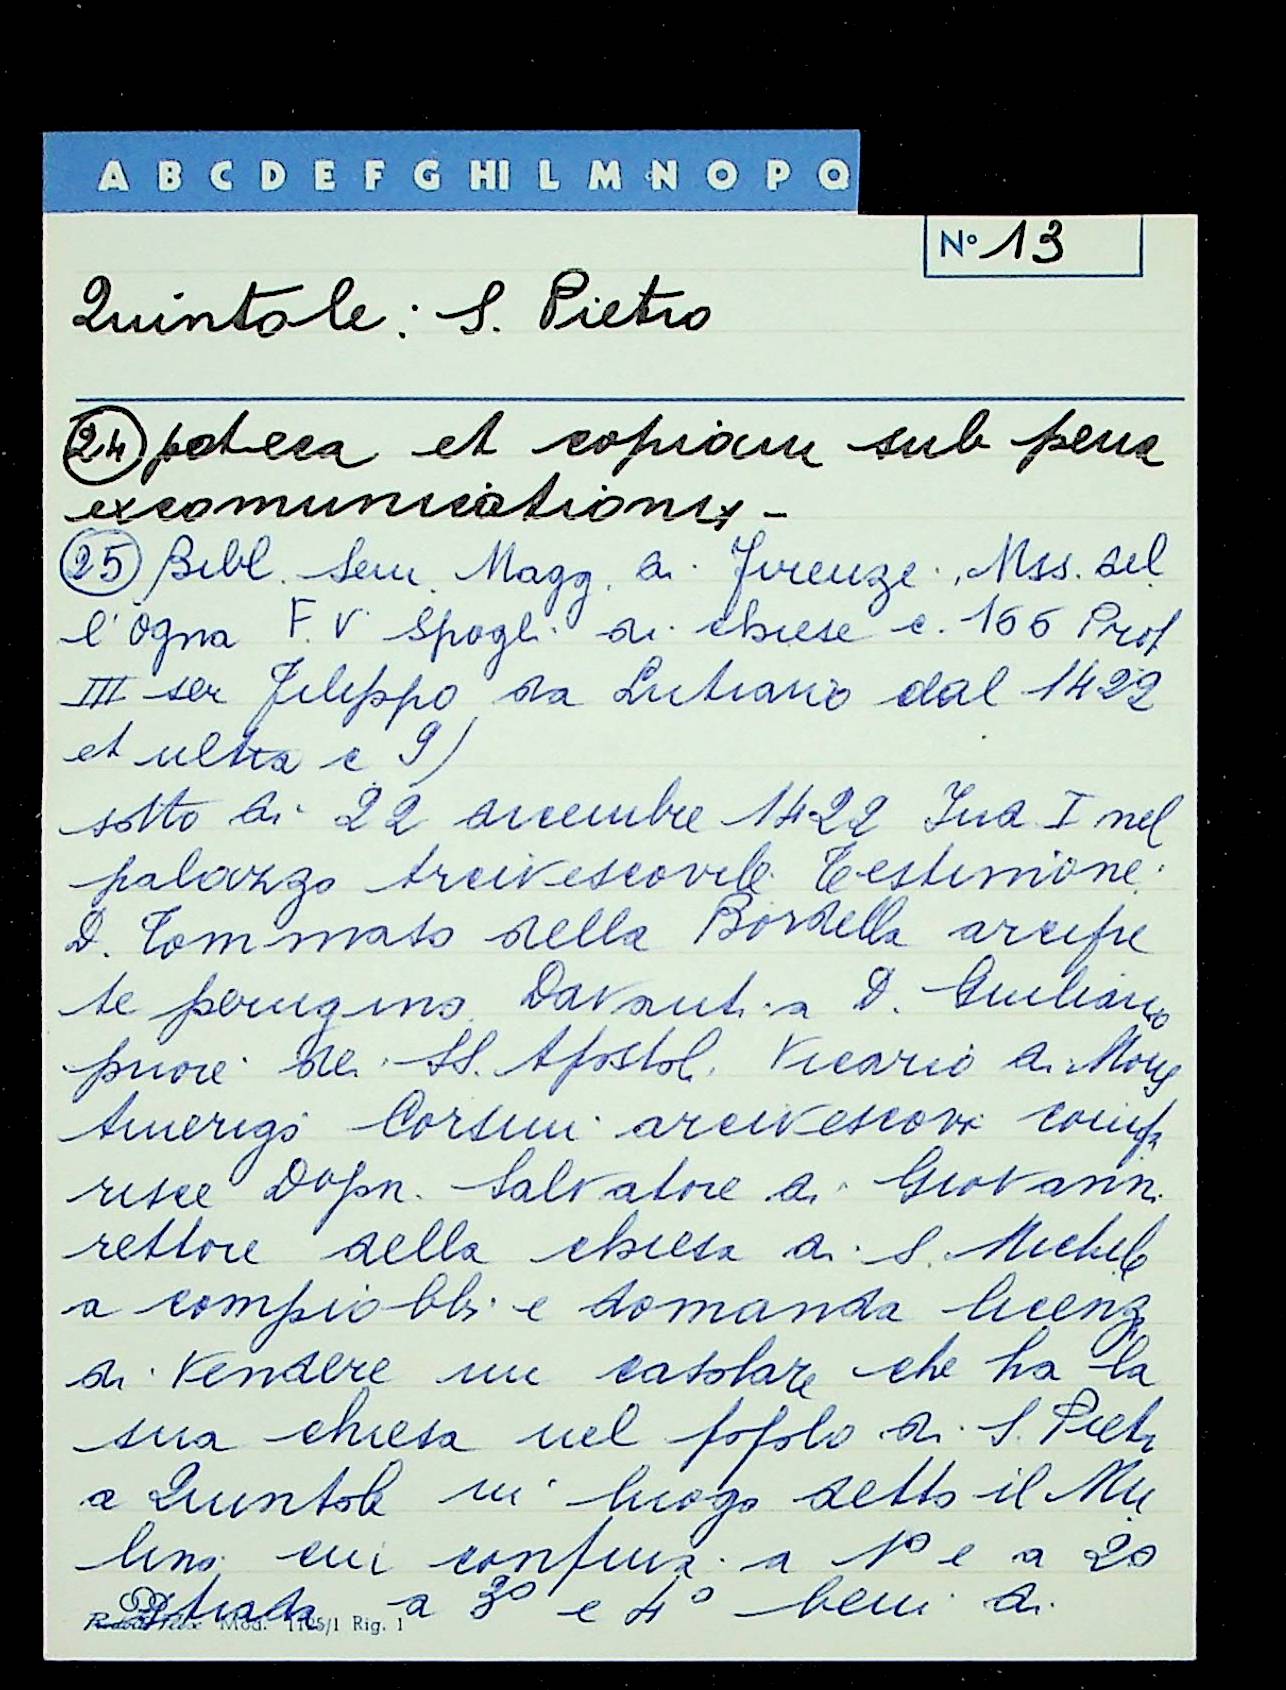 A B C D E F G HI L M N O P Q
N° 13
Quintole: S. Pietro
(24) poteca et copiam sub pena
excomunicationis -
(25) Bibl. Sem. Magg. di Firenze, Mss. del
l'Ogna F. V Spogli di chiese c. 166 Prot
III ser Filippo da Lutiano dal 1422
et ultra c 9)
sotto di 22 dicembre 1422 Ind I nel
palazzo Arcivescovile Testimone:
D. Tommaso della Bordella arcipre
te perugino. Davanti a D. Giuliano
priore dei SS. Apostoli Vicario di Mons
Amerigo Corsini arcivescovo compa
risce Dopn. Salvatore di Giovanni
rettore della chiesa di S. Michele
a compiobbi e domanda licenz
di vendere un casolare che ha la
sua chiesa nel popolo di S. Pietr
a Quintole in luogo detto il Mu
lino cui confina a 1° e a 2°
strada a 3° e 4° beni di
Mod. 1125/1 Rig. 1